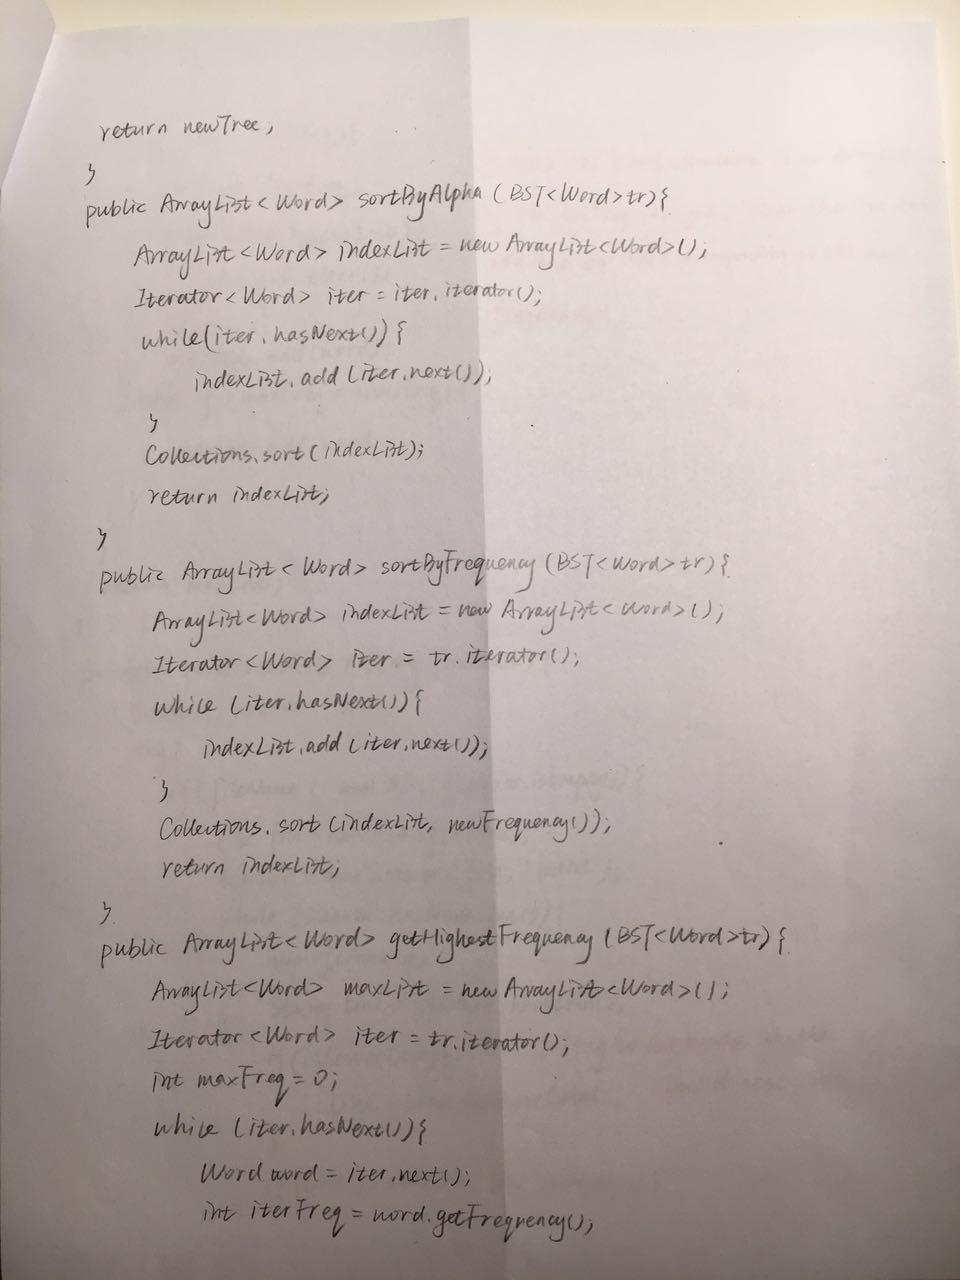 return newTree;
}
public ArrayList<Word> sortByAlpha (BST<Word>tr){
ArrayList<Word> indexList = new ArrayList<Word>();
Iterator<Word> iter = iter.iterator();
while(iter.hasNext()){
indexList.add(iter.next());
}
Collections.sort(indexList);
return indexList;
}
public ArrayList<Word> sortByFrequency (BST<Word>tr){
ArrayList<Word> indexList = new ArrayList<Word>();
Iterator<Word> iter = tr.iterator();
while (iter.hasNext()){
indexList.add(iter.next());
}
Collections.sort(indexList, newFrequency());
return indexList;
}
public ArrayList<Word> getHighestFrequency (BST<Word>tr){
ArrayList<Word> maxList = new ArrayList<Word>();
Iterator<Word> iter = tr.iterator();
int maxFreq = 0;
while (iter.hasNext()){
Word word = iter.next();
int iterFreq = word.getFrequency();